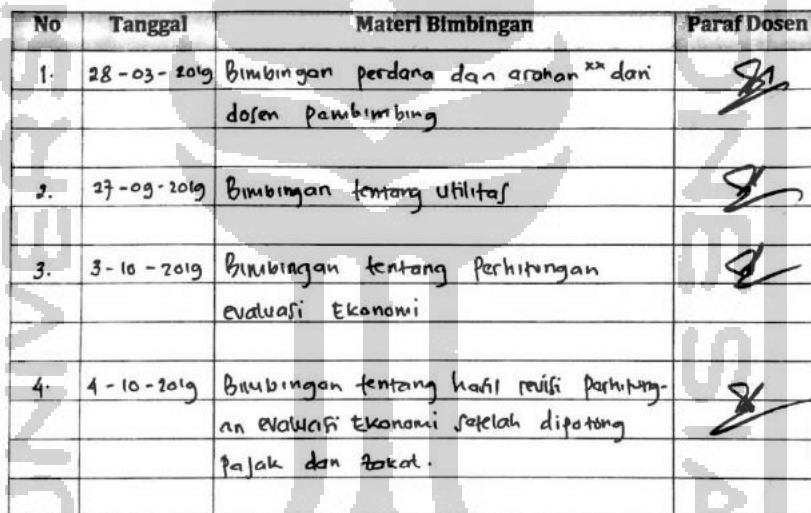 No Tanggal Materi Bimbingan Paraf Dosen
1. 28-03-2019 Bimbingan perdana dan arahan xx dari
dosen pembimbing
2. 27-09-2019 Bimbingan tentang utilitas
3. 3-10-2019 Bimbingan tentang Perhitungan
evaluasi Ekonomi
4. 4-10-2019 Bimbingan tentang hasil revisi perhitung-
an evaluasi Ekonomi setelah dipotong
Pajak dan zakat.